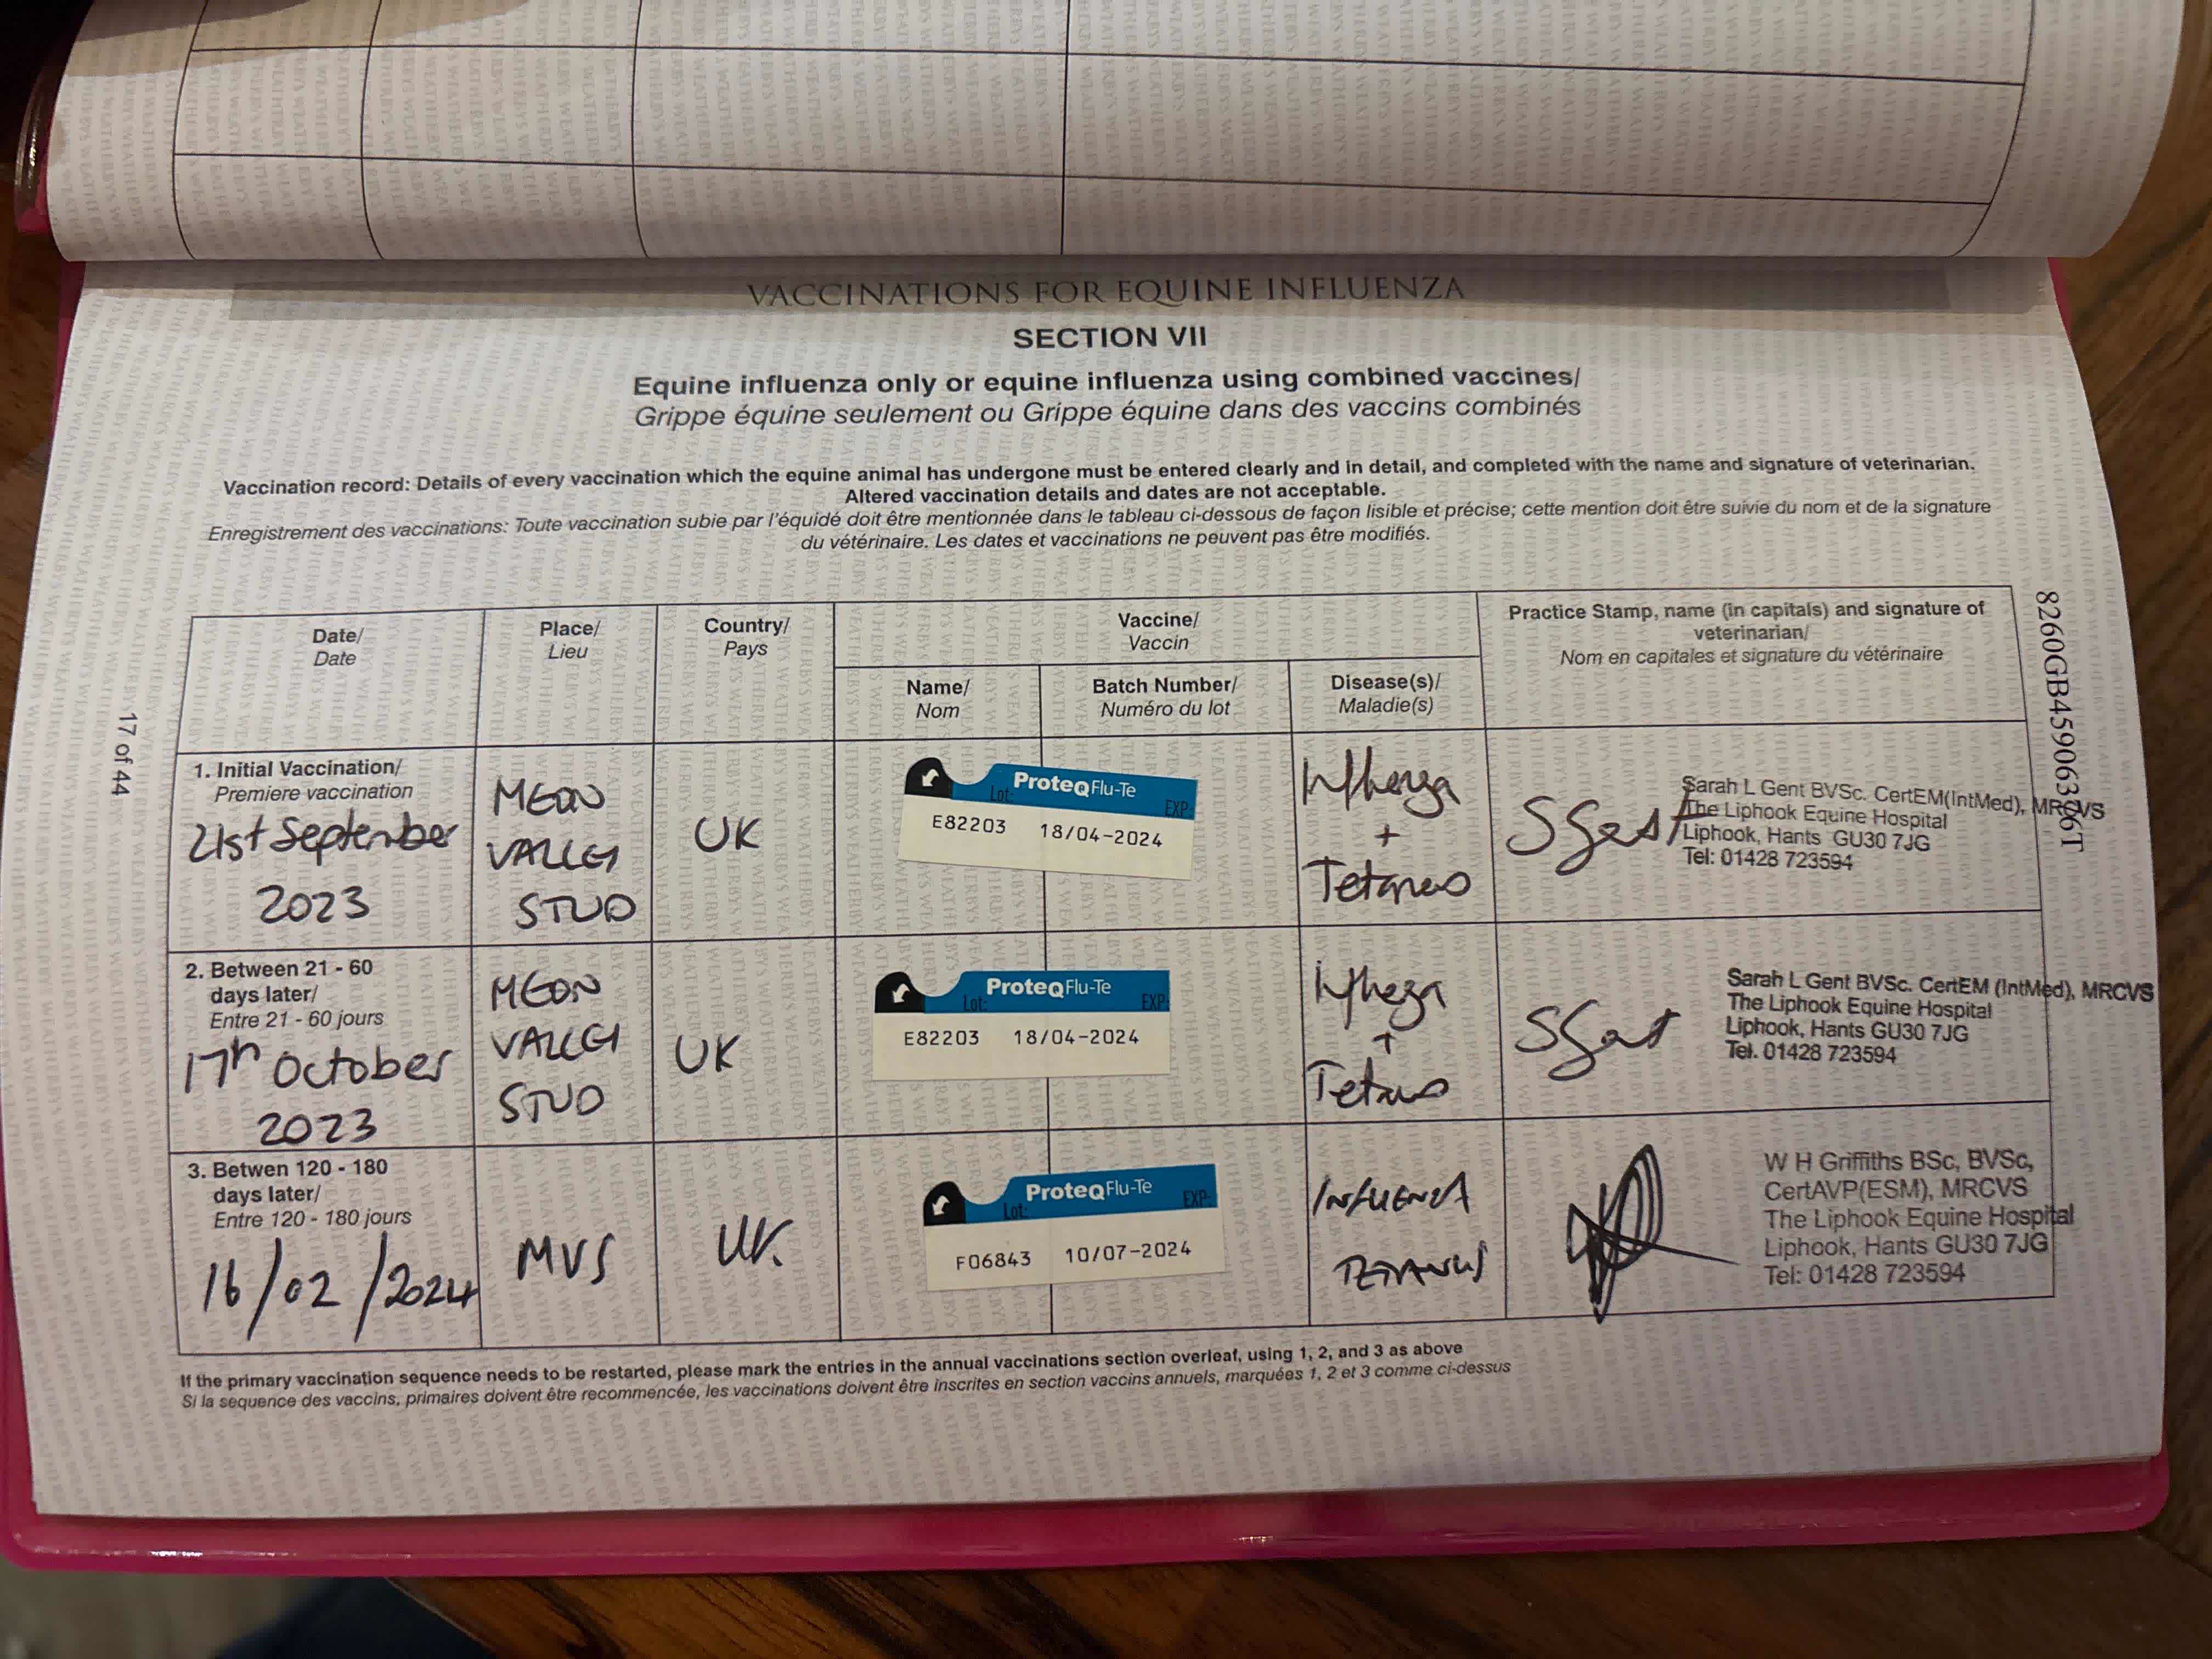 VACCINATIONS FOR EQUINE INFLUENZA
SECTION VII
Equine influenza only or equine influenza using combined vaccines/
Grippe équine seulement ou Grippe équine dans des vaccins combinés
Vaccination record: Details of every vaccination which the equine animal has undergone must be entered clearly and in detail, and completed with the name and signature of veterinarian.
Altered vaccination details and dates are not acceptable.
Enregistrement des vaccinations: Toute vaccination subie par l'équidé doit être mentionnée dans le tableau ci-dessous de façon lisible et précise; cette mention doit être suivie du nom et de la signature
du vétérinaire. Les dates et vaccinations ne peuvent pas être modifiés.
Date/
Date
Place/
Lieu
Country/
Pays
Vaccine/
Vaccin
Name/
Nom
Batch Number/
Numéro du lot
Disease(s)/
Maladie(s)
Practice Stamp, name (in capitals) and signature of
veterinarian/
Nom en capitales et signature du vétérinaire
1. Initial Vaccination/
Premiere vaccination
21st September
2023
MEON
VALLEY
STUD
UK
ProteqFlu-Te
Lot: EXP:
E82203 18/04-2024
Influenza
+
Tetanus
SGent
Sarah L Gent BVSc. CertEM(IntMed), MRCVS
The Liphook Equine Hospital
Liphook, Hants GU30 7JG
Tel: 01428 723594
2. Between 21 - 60
days later/
Entre 21 - 60 jours
17th October
2023
MEON
VALLEY
STUD
UK
ProteqFlu-Te
Lot: EXP:
E82203 18/04-2024
Influenza
+
Tetanus
SGent
Sarah L Gent BVSc. CertEM (IntMed), MRCVS
The Liphook Equine Hospital
Liphook, Hants GU30 7JG
Tel. 01428 723594
3. Betwen 120 - 180
days later/
Entre 120 - 180 jours
16/02/2024
MVS
UK.
ProteqFlu-Te
Lot: EXP:
F06843 10/07-2024
INFLUENZA
TETANUS
W H Griffiths BSc, BVSc,
CertAVP(ESM), MRCVS
The Liphook Equine Hospital
Liphook, Hants GU30 7JG
Tel: 01428 723594
If the primary vaccination sequence needs to be restarted, please mark the entries in the annual vaccinations section overleaf, using 1, 2, and 3 as above
Si la sequence des vaccins, primaires doivent être recommencée, les vaccinations doivent être inscrites en section vaccins annuels, marquées 1, 2 et 3 comme ci-dessus
17 of 44